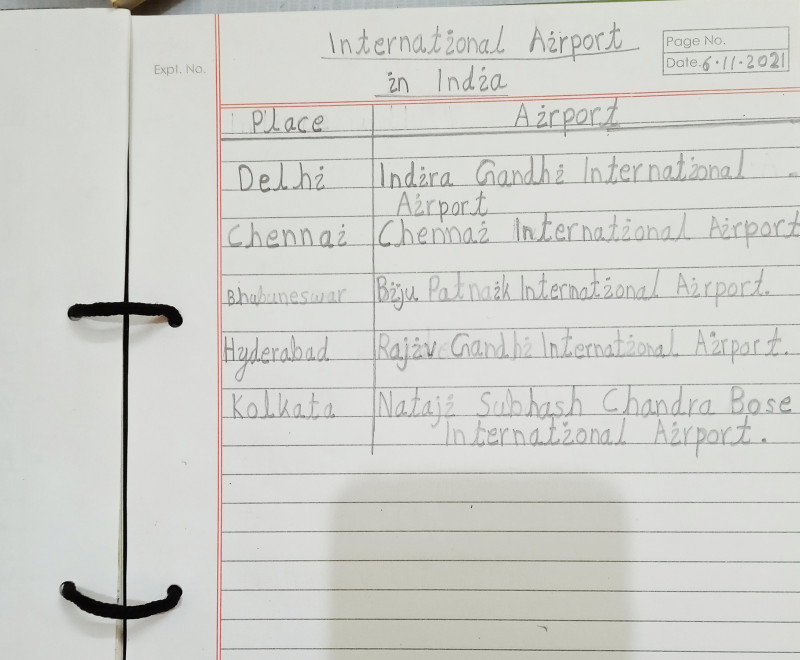 International Airport
in India
Page No.
Date. 6.11.2021
Expl. No.
Place Airport
Delhi Indira Gandhi International
Airport
Chennai Chennai International Airport
Bhubuneswar Biju Patnaik International Airport.
Hyderabad Rajiv Gandhi International Airport.
Kolkata Nataji Subhash Chandra Bose
International Airport.